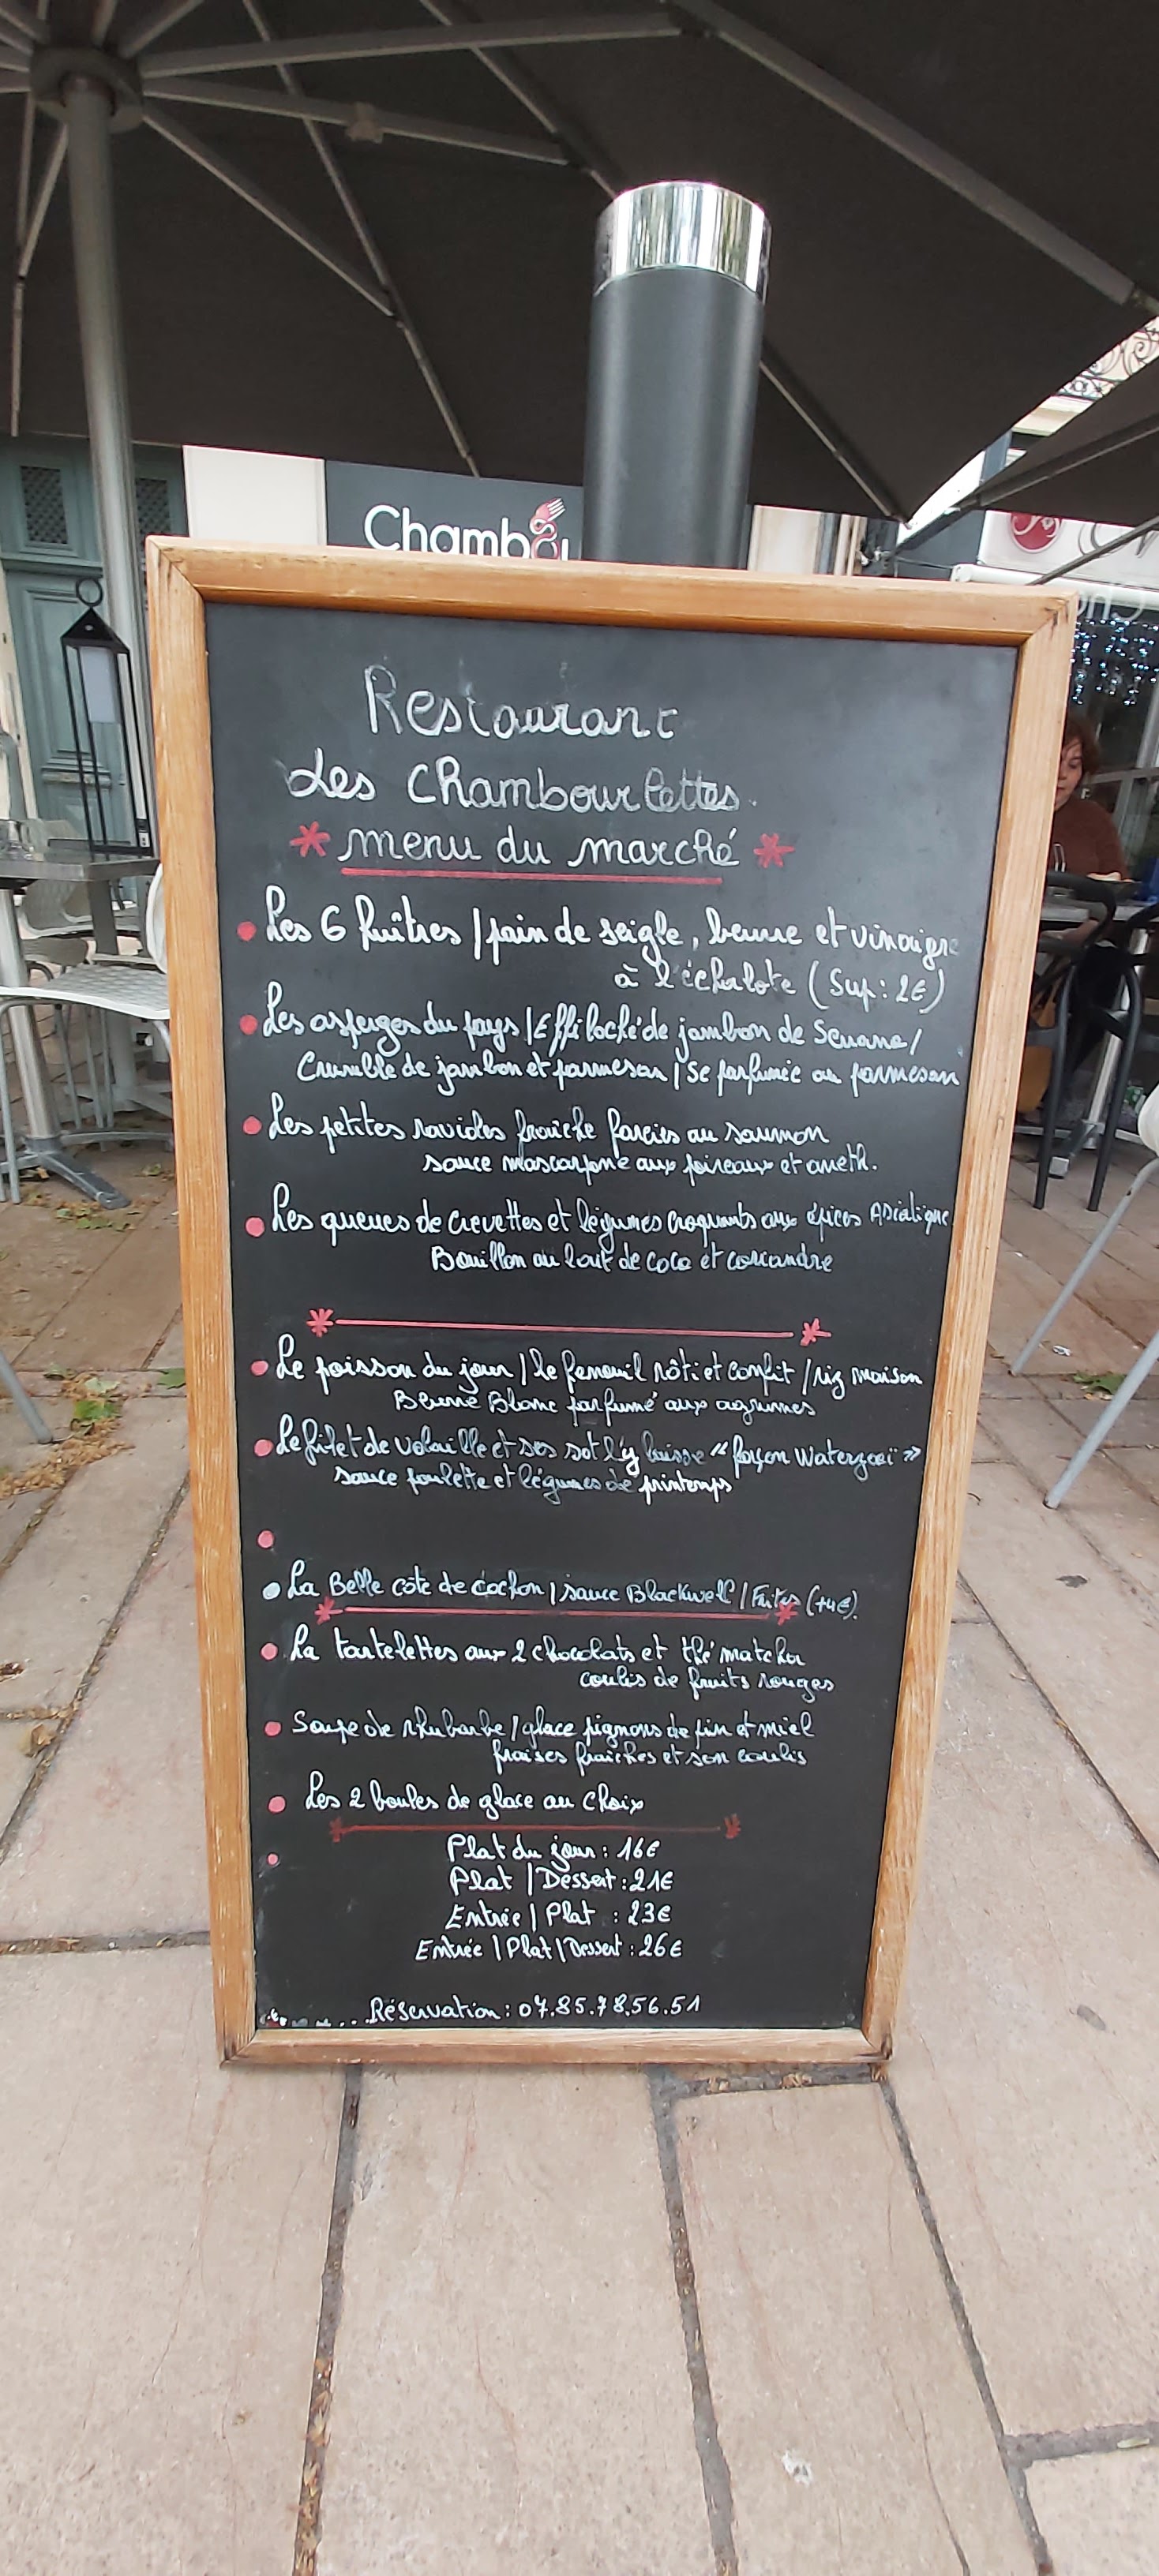 Chambou
Restaurant
Les Chambourlettes.
menu du marché
Les 6 huîtres / pain de seigle, beurre et vinaigre
à l'échalote (Sup: 2€)
Les asperges du pays / Effiloché de jambon de Serrano /
Crumble de jambon et parmesan / parfumée au parmesan
Les petites ravioles fraîche farcies au saumon
sauce mascarpone aux poireaux et aneth.
Les queues de crevettes et légumes croquants aux épices Asiatique
Bouillon au lait de coco et coriandre
Le poisson du jour / le fenouil rôti et confit / riz maison
Beurre Blanc parfumé aux agrumes
Le filet de volaille et ses sot l'y laisse "façon Waterzoï"
sauce poulette et légumes de printemps
La Belle côte de cochon / sauce Blackwell / Frites (+4€).
La tartelettes aux 2 chocolats et thé matcha
coulis de fruits rouges
Soupe de rhubarbe / glace pignons de pin et miel
fraises fraîches et son coulis
Les 2 boules de glace au choix
Plat du jour: 16€
Plat / Dessert: 21€
Entrée / Plat : 23€
Entrée / Plat / Dessert: 26€
Réservation: 07.85.78.56.51